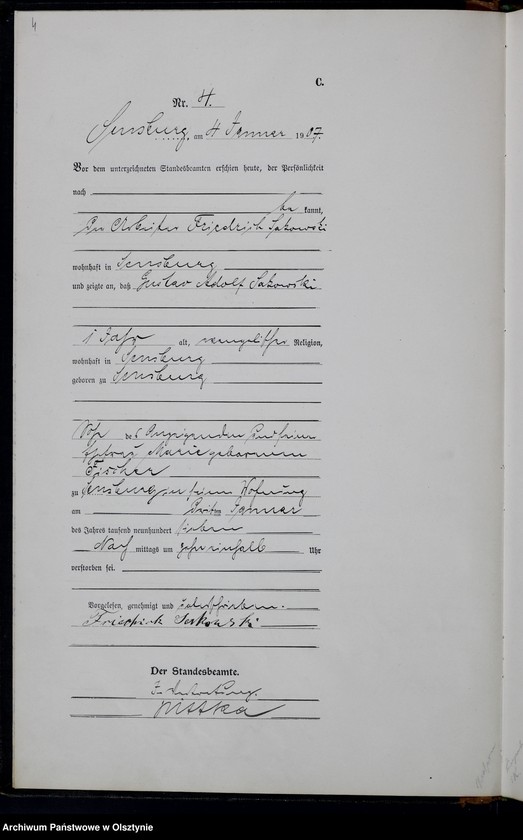 4
C.
Nr. 4.
Sensburg, am 4 Januar 1907.
Vor dem unterzeichneten Standesbeamten erschien heute, der Persönlichkeit
nach
be kannt,
Der Arbeiter Friedrich Sakowski
wohnhaft in Sensburg
und zeigte an, daß Gustav Adolf Sakowski
1 Jahr alt, evangelischer Religion,
wohnhaft in Sensburg
geboren zu Sensburg
Sohn des Anzeigenden und seiner
Ehefrau Marie geborenen
Fischer
zu Sensburg in seiner Wohnung
am Dritten Januar
des Jahres tausend neunhundert sieben
Nach mittags um zehn einhalb Uhr
verstorben sei.
Vorgelesen, genehmigt und unterschrieben.
Friedrich Sakowski
Der Standesbeamte.
In Vertretung.
Pittka
Archiwum Państwowe w Olsztynie